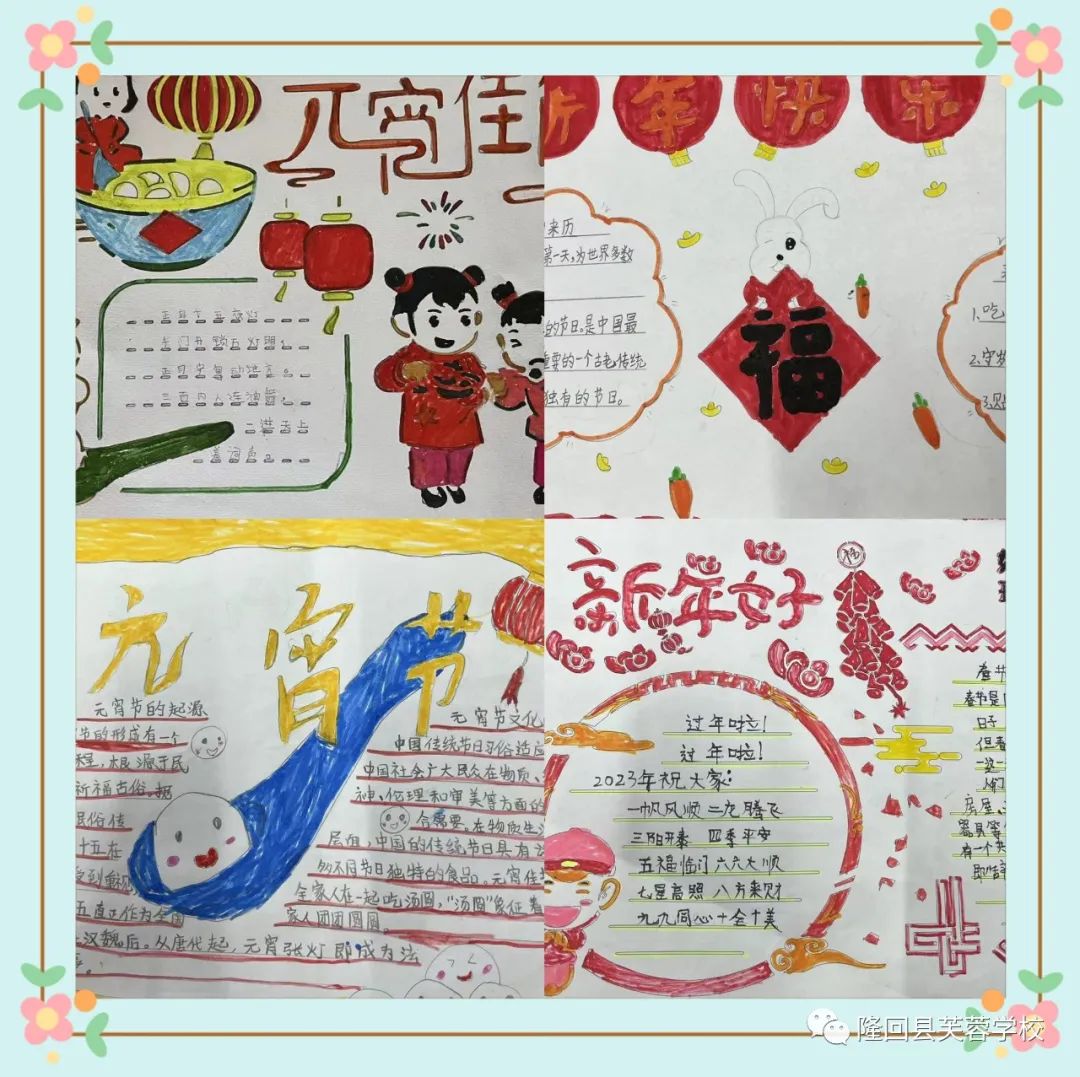 元宵佳
正月十五夜灯
千门开锁万灯明
正月中旬动地京。
三百内人连袖舞
一进天上
著词声。
新年快乐
来历
第一天,为世界多数
的节日。是中国最
重要的一个古老传统
独有的节日。
1.吃
2.守岁
3.贴
福
元宵节
元宵节的起源
节的形成有一个
程,根源于民
祈福古俗。据
民俗传
十五在
受到重视
五真正作为全国
汉魏后。从唐代起,元宵张灯即成为法
元宵节文化
中国传统节日习俗适应
中国社会广大民众在物质、
神、伦理和审美等方面的
合需要。在物质生活
层面,中国的传统节日具有
多不同节日独特的食品。元宵佳
全家人在一起吃汤圆,“汤圆”象征着
家人团团圆圆。
新年好
福
过年啦!
过年啦!
2023年祝大家:
一帆风顺 二龙腾飞
三阳开泰 四季平安
五福临门 六六大顺
七星高照 八方来财
九九同心 十全十美
春节
春节是
日子
但春
房屋、
器具等
有一个共
隆回县芙蓉学校